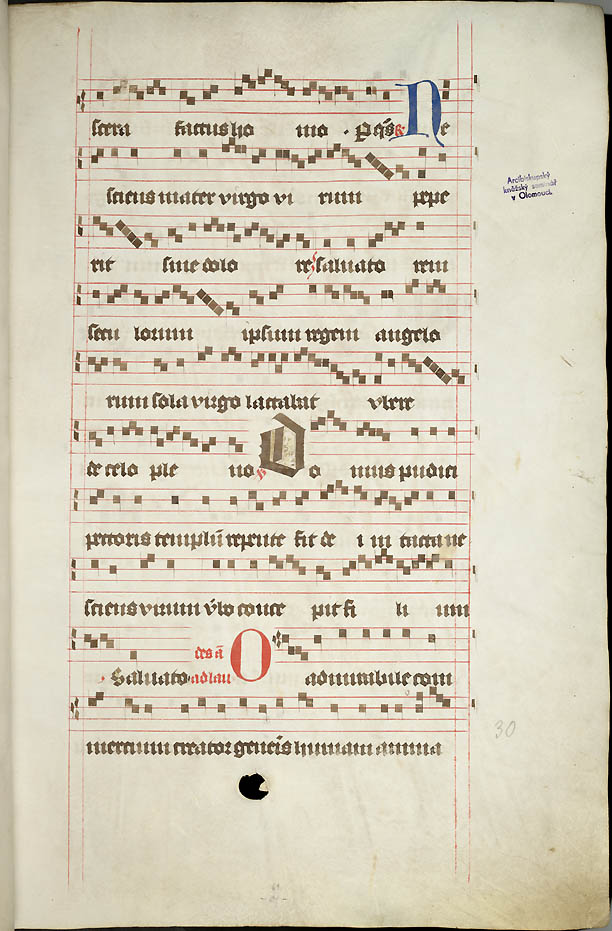 scera factus ho mo . P q̄s R Ne
sciens mater virgo vi rum pepe
rit sine dolo re saluato rem
secu lorum ipsum regem angelo
rum sola virgo lactabat vbere
de celo ple no Do mus pudici
pectoris templū repente fit de i in tacta ne
sciens virum v̄bo conce pit fi li um
Saluato
des a
ad lau
O admirabile com
mercium creator generis humani anima
Arcibiskupský
kněžský seminář
v Olomouci.
30